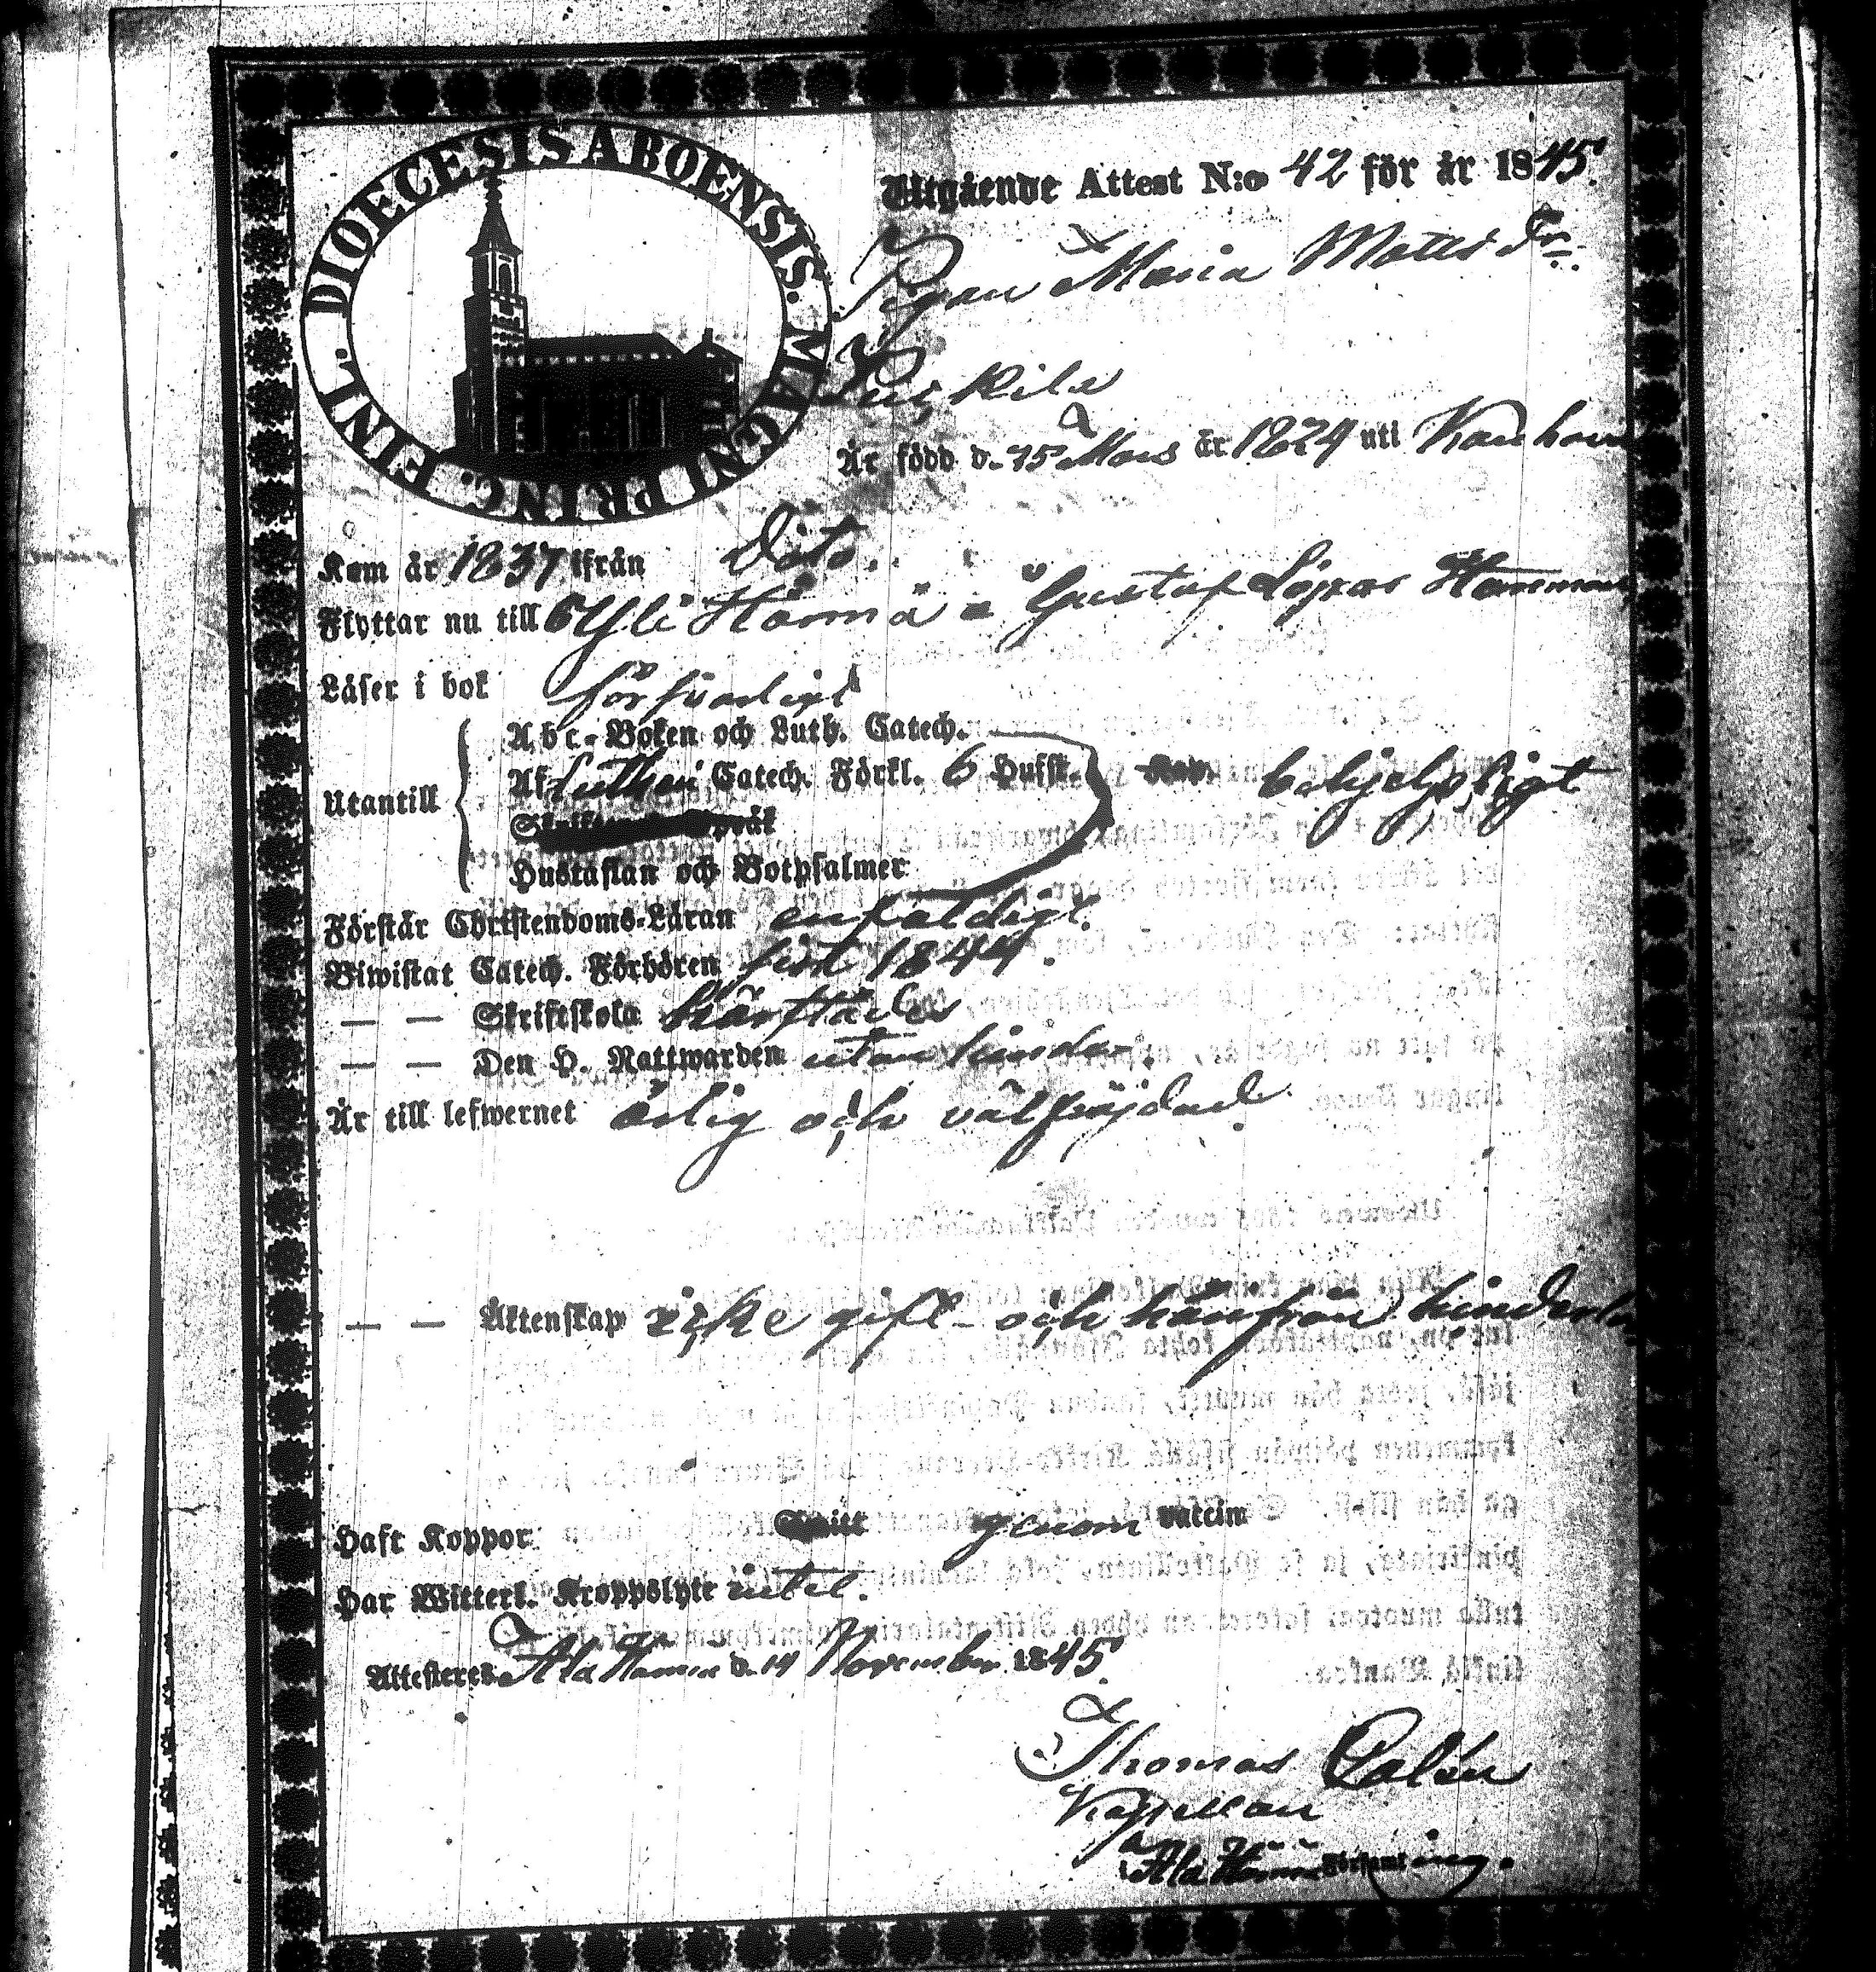 DIOECESIS ABOENSIS. MAGNI PRINC. FINL.
Utgående Attest N:o 42 för år 1845.
Pigan Maria Matts Dr.
Är född d. 15 Mars år 1824 uti Kauhava
Kom år 1837 ifrån Dito.
Flyttar nu till Yli Härmä Gustaf
Läser i bok försvarligt
Utantill
Abc-Boken och Luth. Catech.
Af Lutheri Catech. Förkl. 6 Hufst. behjelpligt
Hustaflan och Botpsalmer
Förstår Christendoms-Läran enfaldigt.
Biwistat Catech. Förhören sist 1844.
— — Skriftskola härstädes
— — Den H. Nattwarden utan hinder.
Är till lefwernet ärlig och välfräjdad.
— — Äktenskap icke gift och härifrån hinderlös
Haft Koppor genom vaccin
Har Witterl. Kroppslyte intet.
Attesteres Ala Härmä d. 14 November 1845.
Thomas
Kapellan
Ala Härmä